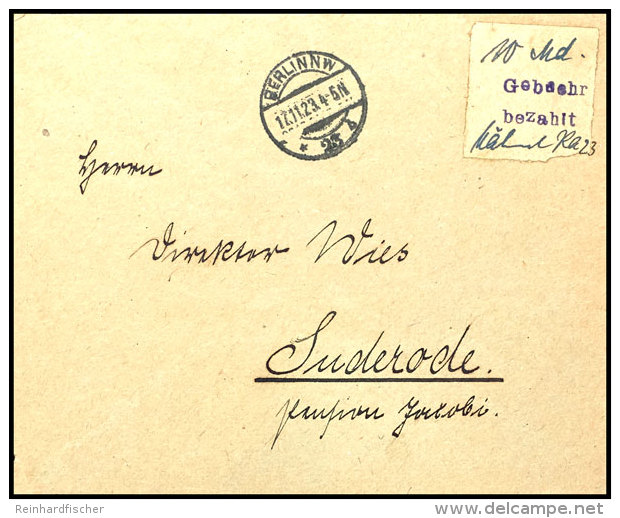 BERLIN NW
17.11.23. 4-5N
* 23 b
10 Md.
Gebuehr
bezahlt
23
Herrn
Direktor Wies
Suderode.
Pension Jacobi.
Reinhardfischer
delcampe.net